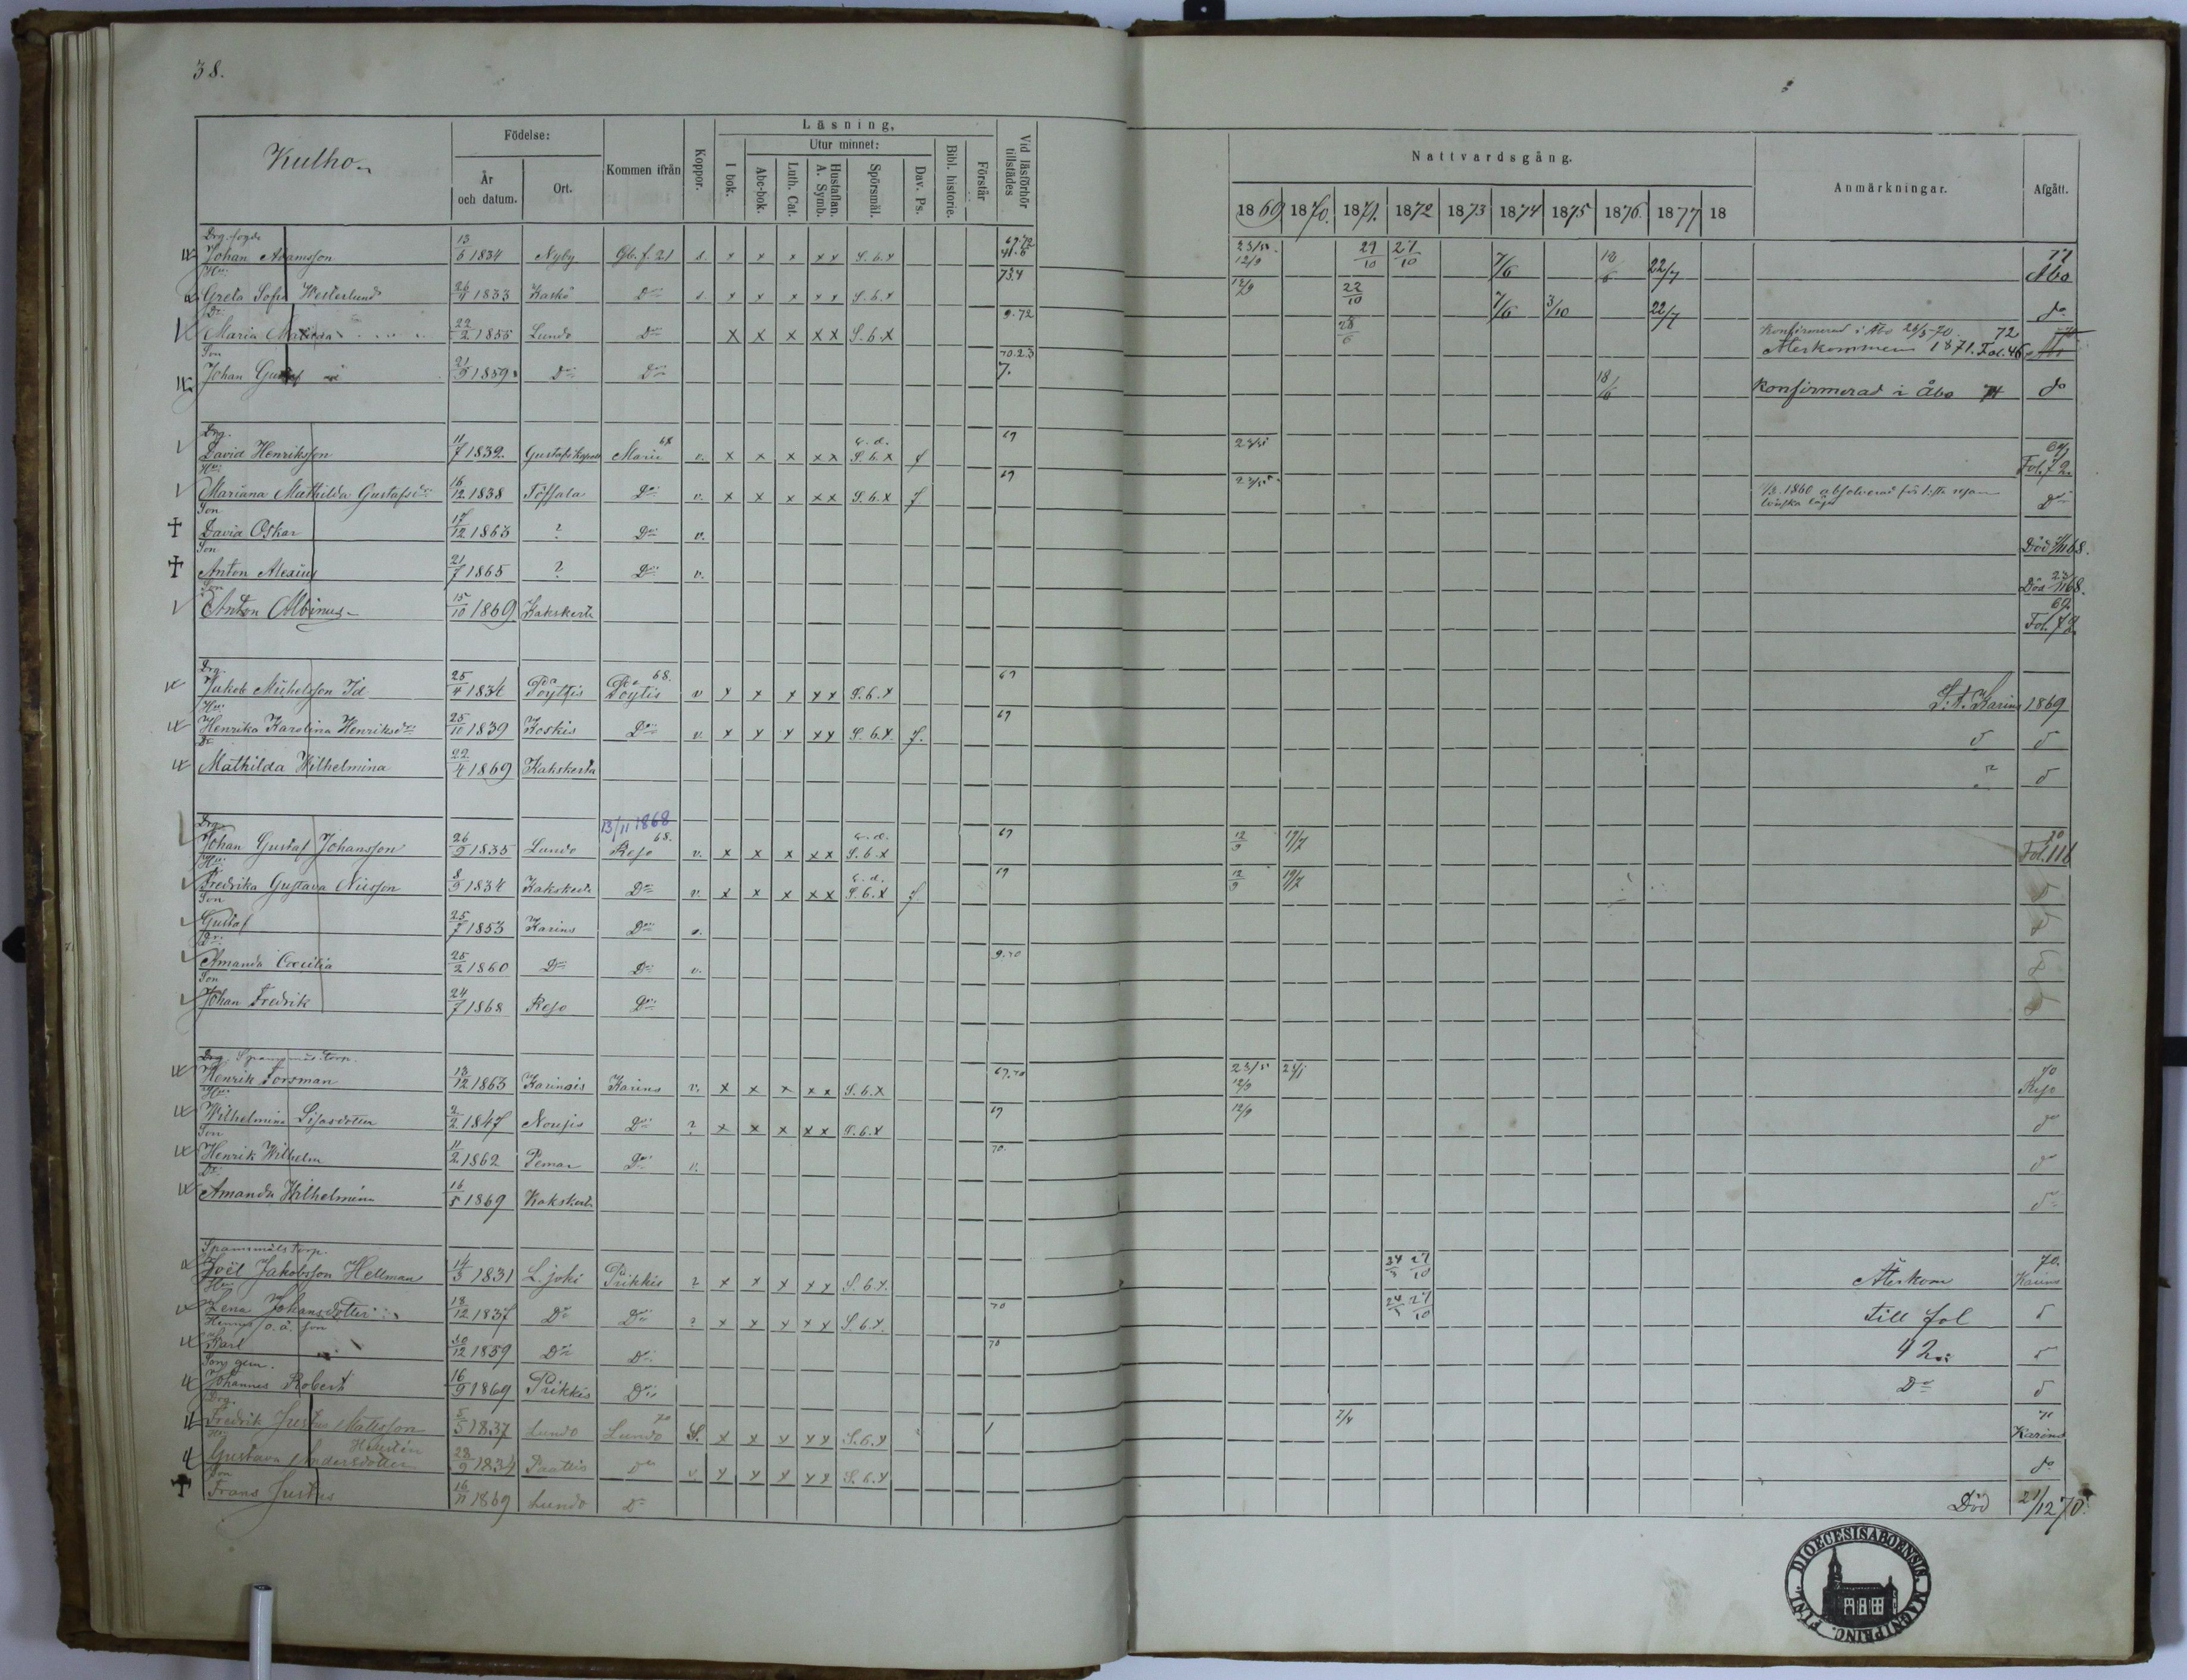 38.
Kulho
Födelse:
År och datum.
Ort.
Kommen ifrån
Koppor.
Läsning,
I bok.
Utur minnet:
Abc-bok.
Luth. Cat.
Hustaflan. A. Symb.
Spörsmål.
Dav. Ps.
Bibl. historie.
Förstår
Vid läsförhör tillstädes
Nattvardsgång.
1869 1870. 1871. 1872 1873 1874 1875 1876. 1877 18
Anmärkningar.
Afgått.
Drg. fogde
Johan Adamsson 13/6 1834 Nyby Gb. f. 21 s. x x x x x S. b. x 23/5. 12/9 29/10 27/10 7/6 18/6 22/7 77 Åbo
Hu:
Greta Sofia Westerlund 1833 Kaskö Do s. x x x x x S. b. x 73.4 12/9 22/10 7/6 3/10 22/7 do
Dr
Maria Matilda 22/2 1855 Lundo Do x x x x x S. b. x 9.72 Konfirmerad i Åbo 72
Återkommen 1871. Fol. 46
Son
Johan Gustaf 21/9 1859 Do Do 70.2.3 7. 18/6 konfirmerad i Åbo do
Drg.
David Henriksson 11/7 1832. Gustafs kapell Marie 68 v. x x x x x S. b. x f 69 23/5 69 Fol. 72.
Hu:
Mariana Mathilda Gustafsdr 16/12 1838 Töfsala Do v. x x x x x S. b. x f 69 23/5 1860 absolverad för Do
Son
David Oskar 17/12 1863 ? Do v. Död 68.
Son
Anton Alexius 21/7 1865 ? Do v. Död 68.
Son
Anton Albinus 15/10 1869 Kakskerta 69. Fol. 72.
Drg.
Jakob Michelsson Id 25/4 1834 Pöyttis 68. Pöytis v x x x x x S. b. x 69 S:t Karins 1869
Hu:
Henrika Karolina Henriksdr 25/10 1839 Koskis Do v. x x x x x S. b. x. f. 69 d d
Dr
Mathilda Wilhelmina 22/4 1869 Kakskerta d
13/11 1868
Drg.
Johan Gustaf Johansson 26/9 1835 Lundo Reso 68. v. x x x x x S. b. x 69 12/9 17/7 70 Fol. 116
Hu:
Fredrika Gustava Nilsson 8/9 1834 Kakskerta Do v. x x x x x S. b. x f 69 12/9 17/7 d
Son
Gustaf 25/7 1853 Karins Do s. d
Dr:
Amanda Cecilia 25/2 1860 Do Do v. 9.70 d
Son
Johan Fredrik 24/7 1868 Reso Do d
Drg. Spannmåls torp.
Henrik Forsman 13/12 1863 Karinais Karins v. x x x x x S. b. x 69.70 23/5 12/9 24/1 70 Reso
Hu:
Wilhelmina Lisasdotter 2/2 1847 Nousis Do ? x x x x x S. b. x 69 12/9 do
Son
Henrik Wilhelm 11/2 1862 Pemar Do v. 70. do
Dr:
Amanda Wilhelmina 16/5 1869 Kakskerta do
Spannmåls torp.
Joël Jakobsson Hellman 14/3 1831 L. joki Piikkis ? x x x x x S. b. x. 27/10 Återkom 70. Karins
Hu:
Lena Johansdotter 18/12 1837 Do Do ? x x x x x S. b. x. 70 27/10 till fol d
Hennes o. ä. son
Karl 30/12 1859 Do Do 70 42. d
Son gem.
Johannes Robert 16/9 1869 Piikkis Do Do d
Drg.
Fredrik Justus Mattsson 5/5 1837 Lundo Lundo 70 S. x x x x x S. b. x 1 71 Karins
Hu:
Gustava Andersdotter 28/9 1834 Paattis Do v. x x x x x S. b. x do
Son
Frans Justus 16/11 1869 Lundo Do Död 21/12 70.
DIOECESIS ABOENSIS. MAGNI PRINC. FINL.